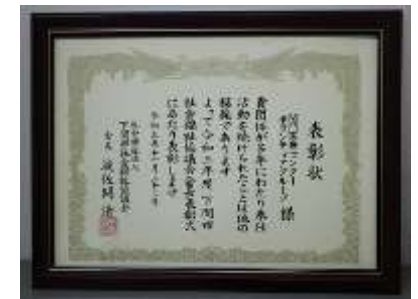 表彰状
ボランティアグループ 様
貴団体が多年にわたり奉仕
活動を続けられたことは他の
模範であります
よって令和三年度下関市
社会福祉協議会会長表彰式
に当たり表彰します
令和三年十一月
社会福祉法人
下関市社会福祉協議会
会長 波佐間 清